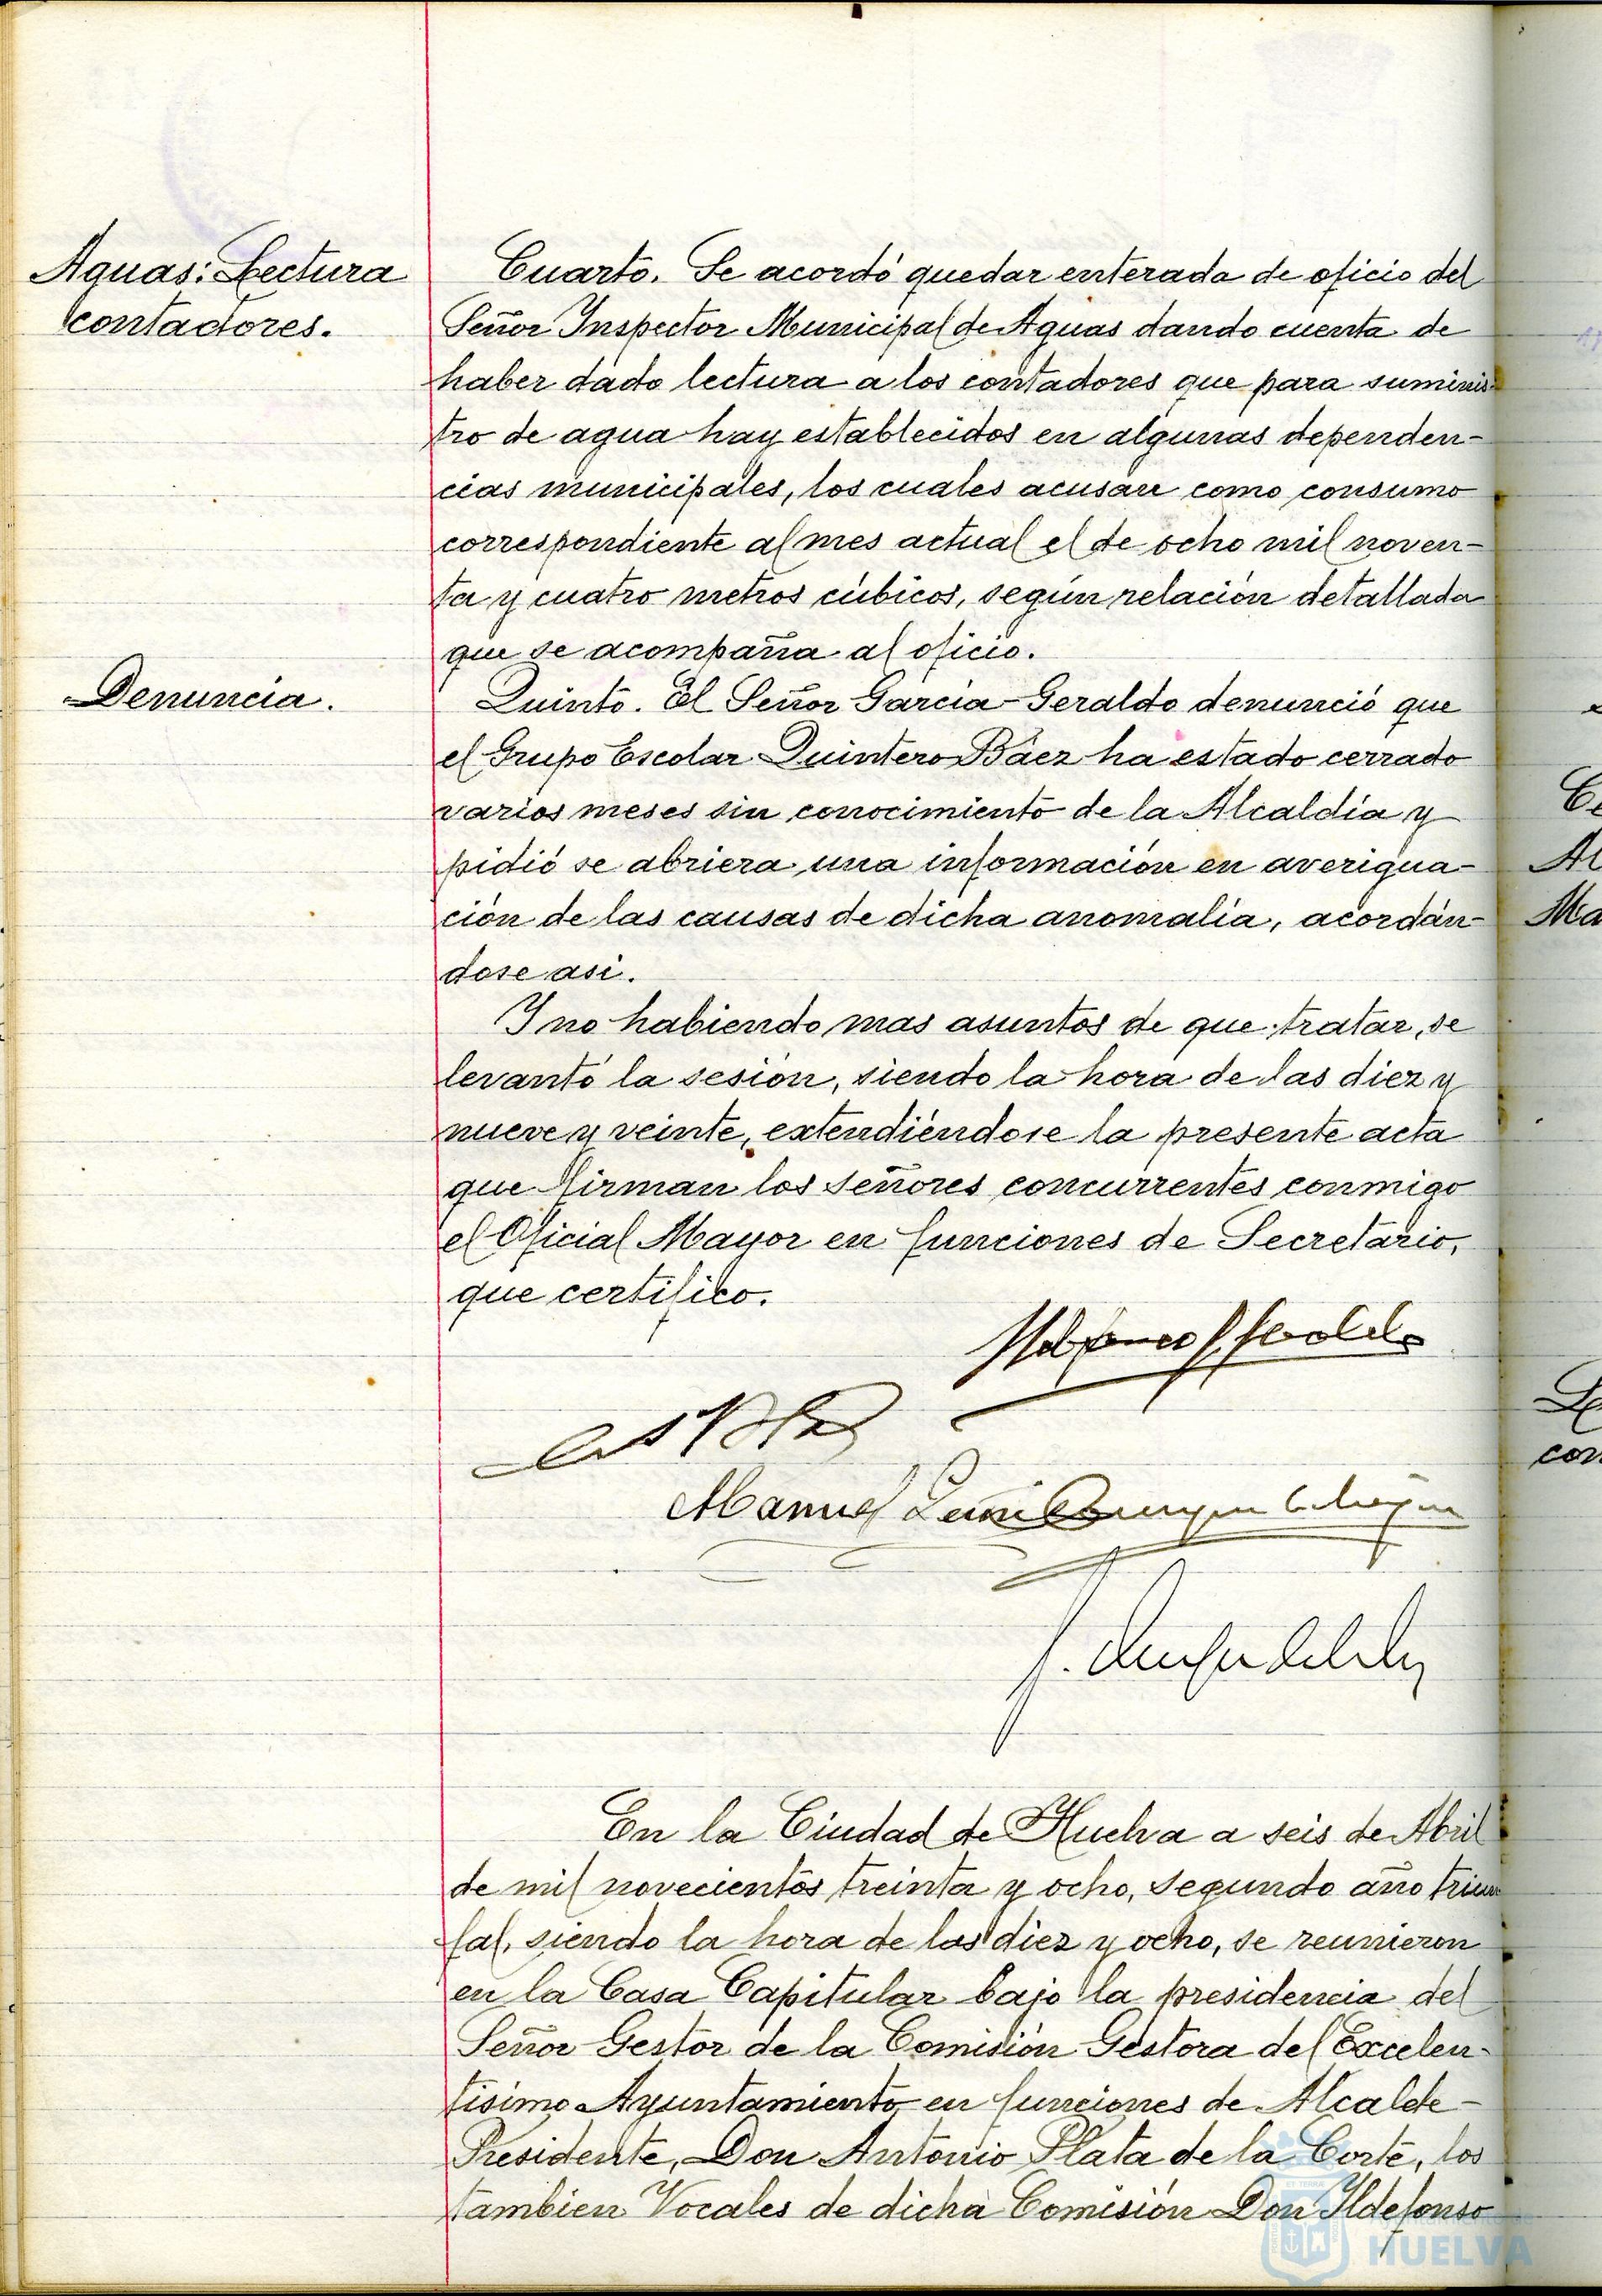 Aguas: Lectura
contadores.
Cuarto. Se acordó quedar enterada de oficio del
Señor Inspector Municipal de Aguas dando cuenta de
haber dado lectura a los contadores que para suminis-
tro de agua hay establecidos en algunas dependen-
cias municipales, los cuales acusan como consumo
correspondiente al mes actual el de ocho mil noven-
ta y cuatro metros cúbicos, según relación detallada
que se acompaña al oficio.
Denuncia.
Quinto. El Señor García-Geraldo denunció que
el Grupo Escolar Quintero Báez ha estado cerrado
varios meses sin conocimiento de la Alcaldía y
pidió se abriera una información en averigua-
ción de las causas de dicha anomalía, acordán-
dose asi.
Y no habiendo mas asuntos de que tratar, se
levantó la sesión, siendo la hora de las diez y
nueve y veinte, extendiéndose la presente acta
que firman los señores concurrentes conmigo
el Oficial Mayor en funciones de Secretario,
que certifico.
Manuel
En la Ciudad de Huelva a seis de Abril
de mil novecientos treinta y ocho, segundo año triun
fal, siendo la hora de las diez y ocho, se reunieron
en la Casa Capitular bajo la presidencia del
Señor Gestor de la Comisión Gestora del Excelen-
tísimo Ayuntamiento en funciones de Alcalde-
Presidente, Don Antonio Plata de la Corte, los
tambien Vocales de dicha Comisión Don Ildefonso
HUELVA